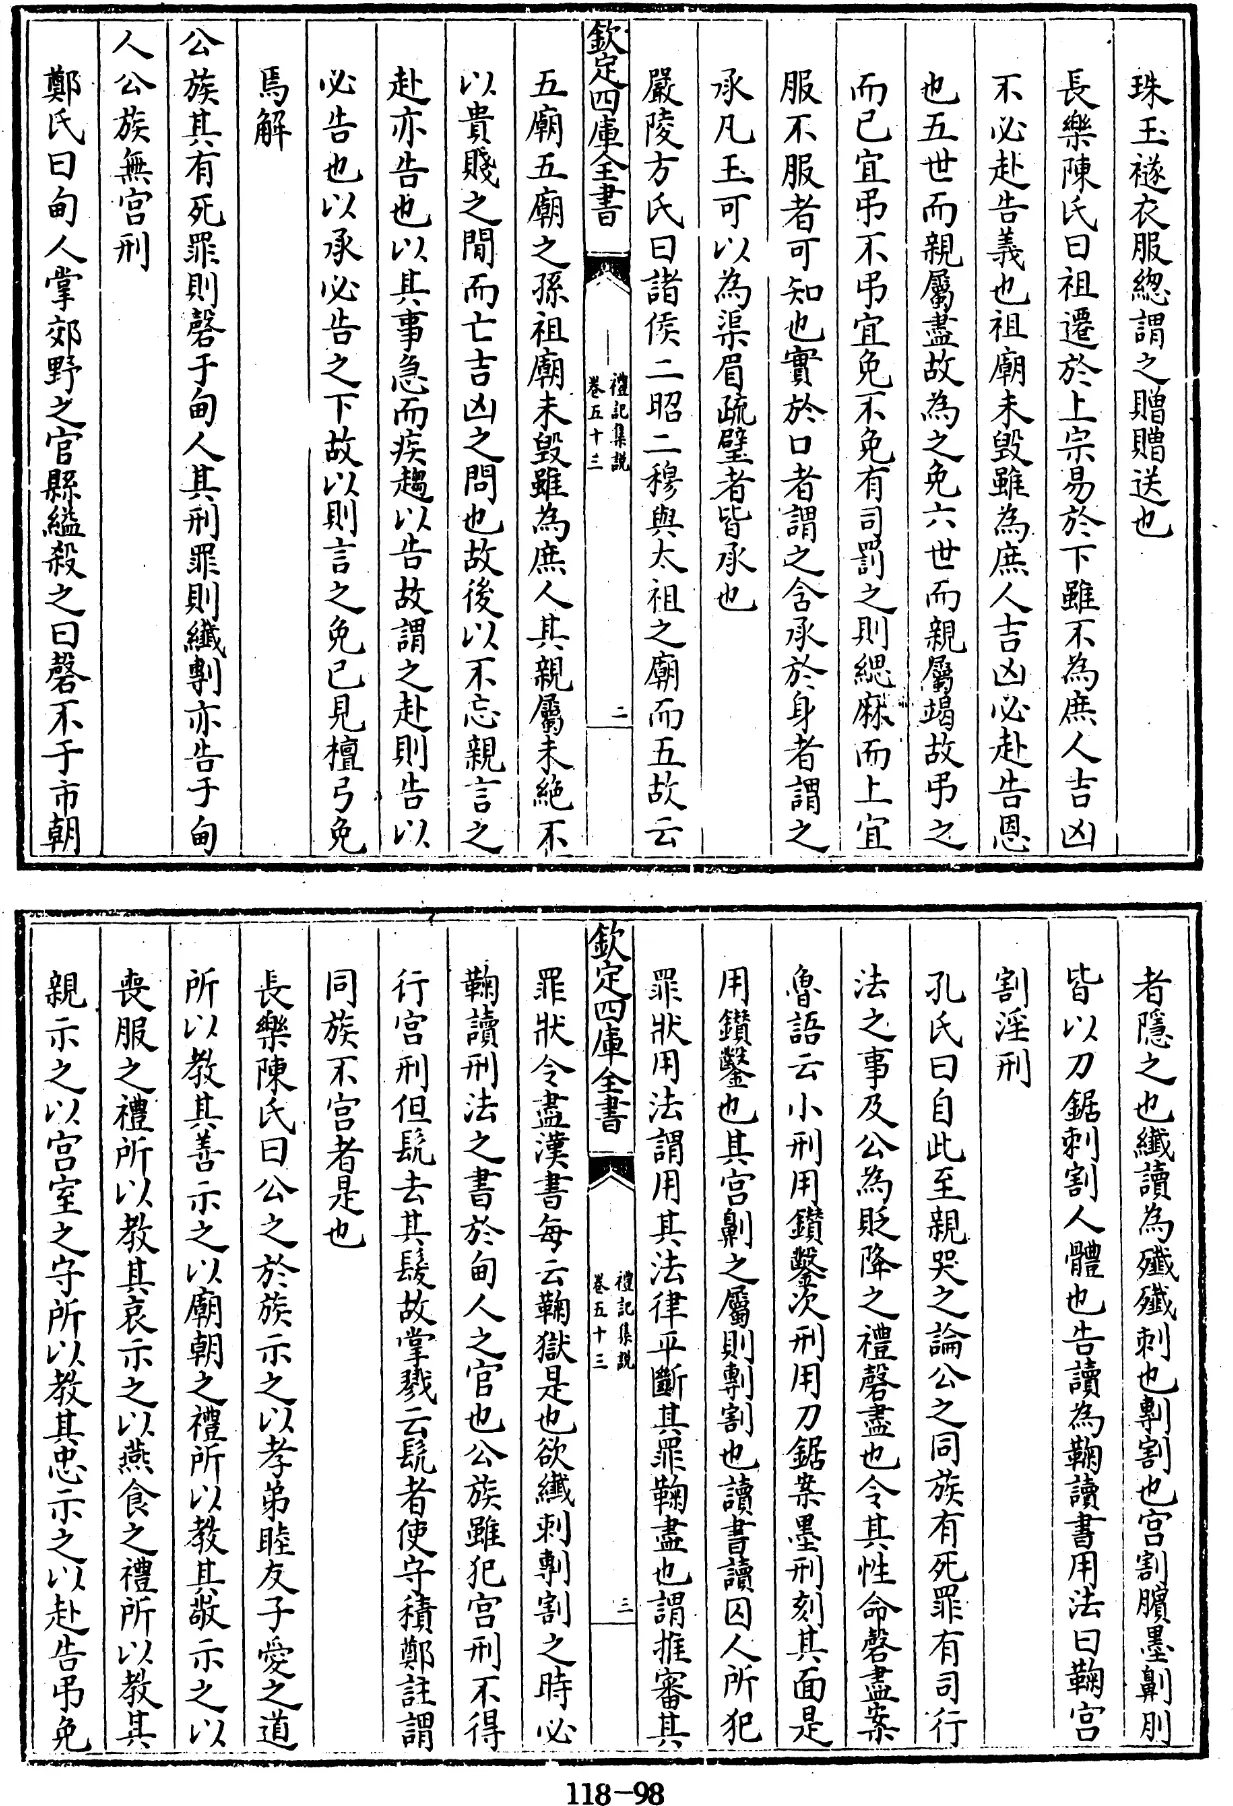 珠玉襚衣服總謂之贈贈送也
長樂陳氏曰祖遷於上宗易於下雖不為庶人吉凶
不必赴告義也祖廟未毀雖為庶人吉凶必赴告恩
也五世而親屬盡故為之免六世而親屬竭故弔之
而已宜弔不弔宜免不免有司罰之則緦麻而上宜
服不服者可知也實於口者謂之含承於身者謂之
承凡玉可以為渠眉疏璧者皆承也
嚴陵方氏曰諸侯二昭二穆與太祖之廟而五故云
欽定四庫全書
禮記集説
卷五十三
二
五廟五廟之孫祖廟未毀雖為庶人其親屬未絶不
以貴賤之間而亡吉凶之問也故後以不忘親言之
赴亦告也以其事急而疾趨以告故謂之赴則告以
必告也以承必告之下故以則言之免已見檀弓免
焉解
公族其有死罪則磬于甸人其刑罪則纎剸亦告于甸
人公族無宫刑
鄭氏曰甸人掌郊野之官縣縊殺之曰磬不于市朝
者隱之也纎讀為殲殲刺也剸割也宫割臏墨劓刖
皆以刀鋸刺割人體也告讀為鞠讀書用法曰鞠宫
割淫刑
孔氏曰自此至親哭之論公之同族有死罪有司行
法之事及公為貶降之禮磬盡也令其性命磬盡案
魯語云小刑用鑚鑿次刑用刀鋸案墨刑刻其面是
用鑚鑿也其宫劓之屬則剸割也讀書讀囚人所犯
罪狀用法謂用其法律平斷其罪鞠盡也謂推審其
欽定四庫全書
禮記集説
卷五十三
三
罪狀令盡漢書每云鞠獄是也欲纎刺剸割之時必
鞠讀刑法之書於甸人之官也公族雖犯宫刑不得
行宫刑但髡去其髮故掌戮云髡者使守積鄭註謂
同族不宫者是也
長樂陳氏曰公之於族示之以孝弟睦友子愛之道
所以教其善示之以廟朝之禮所以教其敬示之以
喪服之禮所以教其哀示之以燕食之禮所以教其
親示之以宫室之守所以教其忠示之以赴告弔免
118-98